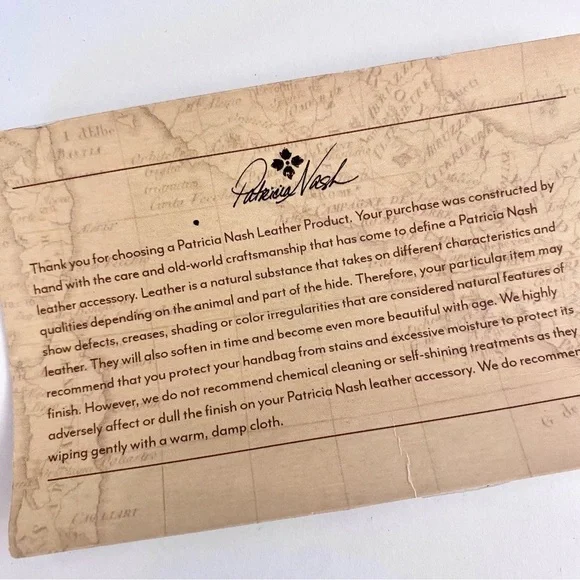 Patricia Nash
Thank you for choosing a Patricia Nash Leather Product. Your purchase was constructed by
hand with the care and old-world craftsmanship that has come to define a Patricia Nash
leather accessory. Leather is a natural substance that takes on different characteristics and
qualities depending on the animal and part of the hide. Therefore, your particular item may
show defects, creases, shading or color irregularities that are considered natural features of
leather. They will also soften in time and become even more beautiful with age. We highly
recommend that you protect your handbag from stains and excessive moisture to protect its
finish. However, we do not recommend chemical cleaning or self-shining treatments as they
adversely affect or dull the finish on your Patricia Nash leather accessory. We do recommen
wiping gently with a warm, damp cloth.